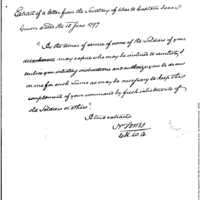 Extract of a letter from the Secretary of War to Captain Isaac
Guion dated the 18 June 1797
"As the terms of service of some of the Soldiers of your
detachment may expire who may be inclined to reinlist, I
enclose you inlisting instructions and authorize you to draw
money for such Sums as may be necessary to keep the
complement of your command by fresh inlistments of
old Soldiers or others"
A true extract